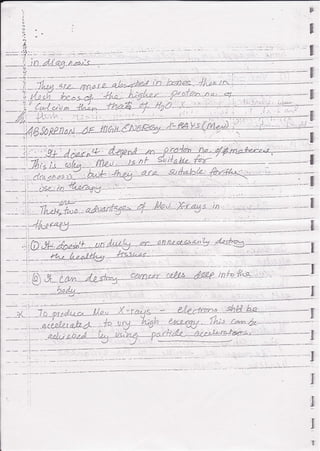 in diagnosis
They are more absorbed in bones than in
flesh bcos of the higher proton no. of
Calcium than that of H2O
ABSORPTION OF HIGH ENERGY X-RAYS (Mev)
It doesn't depend on proton no. of material.
This is why Mev is not suitable for
diagnosis but they are suitable for the
use in therapy
There are two advantages of Mev X-rays in
therapy
① It doesn't unduely or unnecessarily destroy
the healthy tissues.
② It can destroy cancer cells deep into the
body
To produce Mev X-rays - electrons shd be
accelerated to very high energy. This can be
achieved by using particle accelerators.